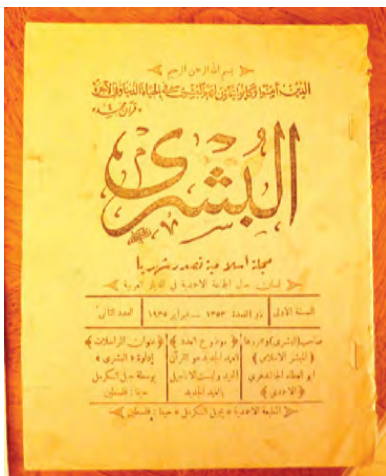 بسم الله الرحمن الرحيم
الذين آمنوا وكانوا يتقون لهم البشرى في الحياة الدنيا وفي الآخرة
البشرى
مجلة اسلامية تصدر شهريا
لسان حال الجماعة الاحمدية في الديار العربية
السنة الأولى
ذو القعدة ١٣٥٣ — فبراير ١٩٣٥
العدد الثاني
صاحب البشرى ومحررها
المبشر الاسلامي
ابو العطاء الجالندهري
الاحمدي
موضوع العدد
العهد الجديد هو القرآن
المجيد وليست الاناجيل
بالعهد الجديد
عنوان المراسلات
إدارة البشرى
بوسطة جبل الكرمل
حيفا : فلسطين
المطبعة الاحمدية بجبل الكرمل حيفا : فلسطين